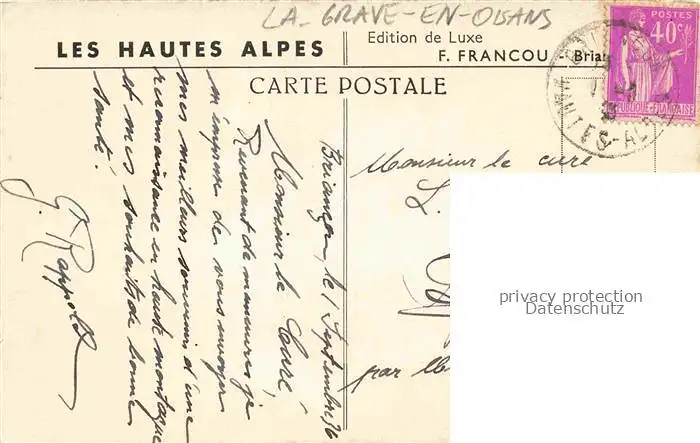 LA-GRAVE-EN-OISANS
LES HAUTES ALPES
Edition de Luxe
F. FRANCOU
Brian
CARTE POSTALE
POSTES
40c
REPUBLIQUE FRANÇAISE
HAUTES-ALPES
Briançon, le 1 Septembre 36
Monsieur le Curé,
Revenant de manœuvres je
m'impose de vous envoyer
mes meilleurs souvenirs d'une
reconnaissance en haute montagne
et mes souhaits de bonne
santé.
G. Rappold
Monsieur le curé
L.
par
privacy protection
Datenschutz